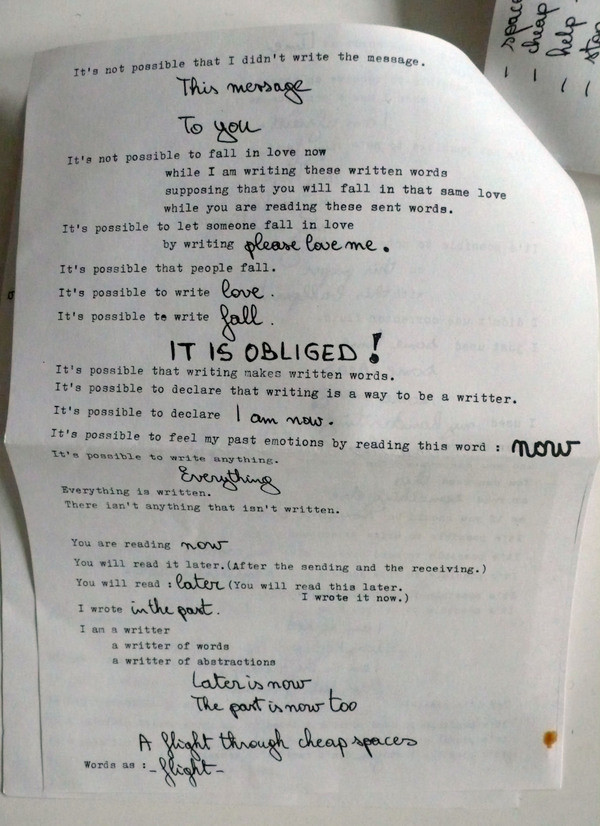 It's not possible that I didn't write the message.
This message
To you
It's not possible to fall in love now
while I am writing these written words
supposing that you will fall in that same love
while you are reading these sent words.
It's possible to let someone fall in love
by writing please love me.
It's possible that people fall.
It's possible to write love.
It's possible to write fall.
IT IS OBLIGED!
It's possible that writing makes written words.
It's possible to declare that writing is a way to be a writter.
It's possible to declare I am now.
It's possible to feel my past emotions by reading this word : now
It's possible to write anything.
Everything
Everything is written.
There isn't anything that isn't written.
You are reading now
You will read it later.(After the sending and the receiving.)
You will read : later (You will read this later.
I wrote it now.)
I wrote in the past.
I am a writter
a writter of words
a writter of abstractions
Later is now
The past is now too
A flight through cheap spaces
Words as : -flight-
- space
- cheap
- help
- stop